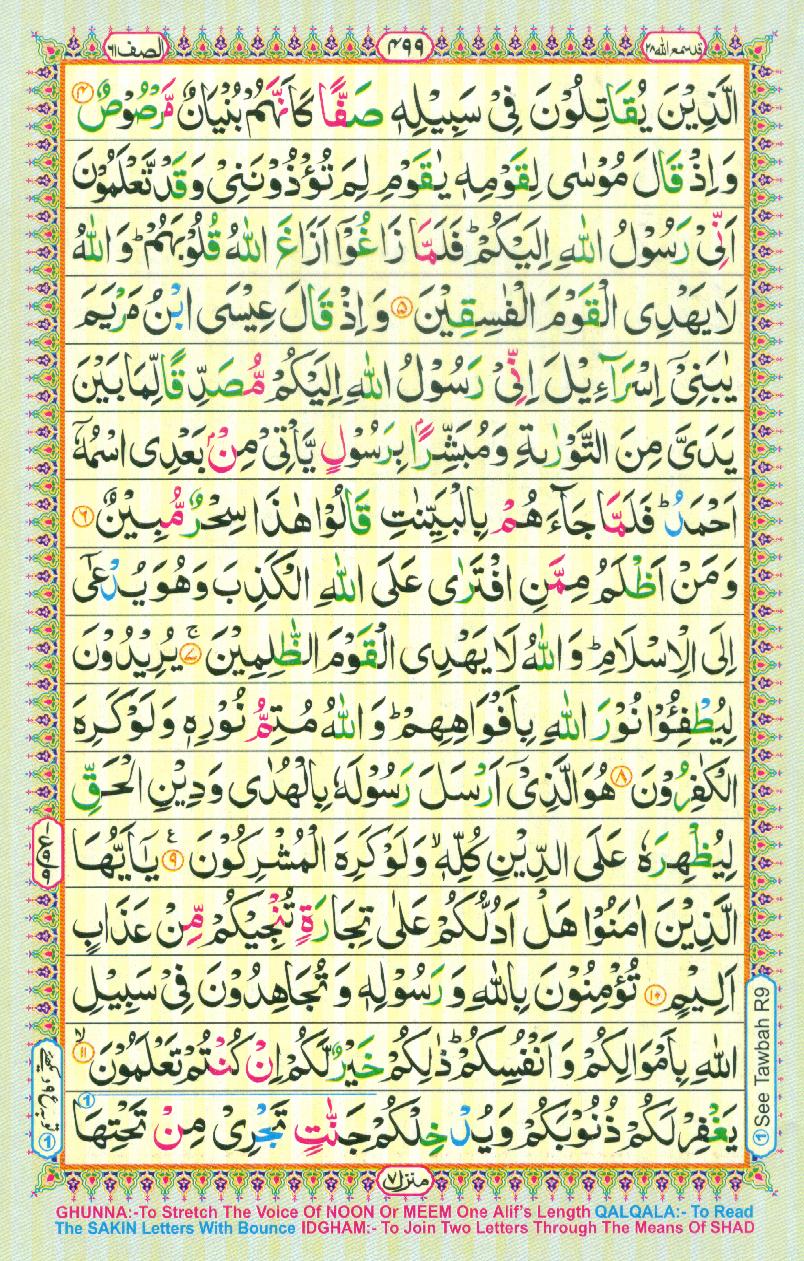 الصف ٦١
٤٩٩
قد سمع الله ٢٨
الَّذِیْنَ یُقَاتِلُوْنَ فِیْ سَبِیْلِهٖ صَفًّا كَاَنَّهُمْ بُنْیَانٌ مَّرْصُوْصٌ ۴
وَاِذْ قَالَ مُوْسٰی لِقَوْمِهٖ یٰقَوْمِ لِمَ تُؤْذُوْنَنِیْ وَقَدْ تَّعْلَمُوْنَ
اَنِّیْ رَسُوْلُ اللّٰهِ اِلَیْكُمْ ؕ فَلَمَّا زَاغُوْۤا اَزَاغَ اللّٰهُ قُلُوْبَهُمْ ؕ وَاللّٰهُ
لَا یَهْدِی الْقَوْمَ الْفٰسِقِیْنَ ۵ وَاِذْ قَالَ عِیْسَی ابْنُ مَرْیَمَ
یٰبَنِیْۤ اِسْرَآءِیْلَ اِنِّیْ رَسُوْلُ اللّٰهِ اِلَیْكُمْ مُّصَدِّقًا لِّمَا بَیْنَ
یَدَیَّ مِنَ التَّوْرٰىةِ وَمُبَشِّرًۢا بِرَسُوْلٍ یَّاْتِیْ مِنْۢ بَعْدِی اسْمُهٗۤ
اَحْمَدُ ؕ فَلَمَّا جَآءَهُمْ بِالْبَیِّنٰتِ قَالُوْا هٰذَا سِحْرٌ مُّبِیْنٌ ۶
وَمَنْ اَظْلَمُ مِمَّنِ افْتَرٰی عَلَی اللّٰهِ الْكَذِبَ وَهُوَ یُدْعٰۤی
اِلَی الْاِسْلَامِ ؕ وَاللّٰهُ لَا یَهْدِی الْقَوْمَ الظّٰلِمِیْنَ ۷ۚ یُرِیْدُوْنَ
لِیُطْفِـُٔوْا نُوْرَ اللّٰهِ بِاَفْوَاهِهِمْ ؕ وَاللّٰهُ مُتِمُّ نُوْرِهٖ وَلَوْ كَرِهَ
الْكٰفِرُوْنَ ۸ هُوَ الَّذِیْۤ اَرْسَلَ رَسُوْلَهٗ بِالْهُدٰی وَدِیْنِ الْحَقِّ
لِیُظْهِرَهٗ عَلَی الدِّیْنِ كُلِّهٖ ۙ وَلَوْ كَرِهَ الْمُشْرِكُوْنَ ۹ ع یٰۤاَیُّهَا
الَّذِیْنَ اٰمَنُوْا هَلْ اَدُلُّكُمْ عَلٰی تِجَارَةٍ تُنْجِیْكُمْ مِّنْ عَذَابٍ
اَلِیْمٍ ۱۰ تُؤْمِنُوْنَ بِاللّٰهِ وَرَسُوْلِهٖ وَتُجَاهِدُوْنَ فِیْ سَبِیْلِ
اللّٰهِ بِاَمْوَالِكُمْ وَاَنْفُسِكُمْ ؕ ذٰلِكُمْ خَیْرٌ لَّكُمْ اِنْ كُنْتُمْ تَعْلَمُوْنَ ۙ۱۱
یَغْفِرْ لَكُمْ ذُنُوْبَكُمْ وَیُدْخِلْكُمْ جَنّٰتٍ تَجْرِیْ مِنْ تَحْتِهَا
1
1 See Tawbah R9
منزل ۷
GHUNNA:-To Stretch The Voice Of NOON Or MEEM One Alif's Length QALQALA:- To Read
The SAKIN Letters With Bounce IDGHAM:- To Join Two Letters Through The Means Of SHAD